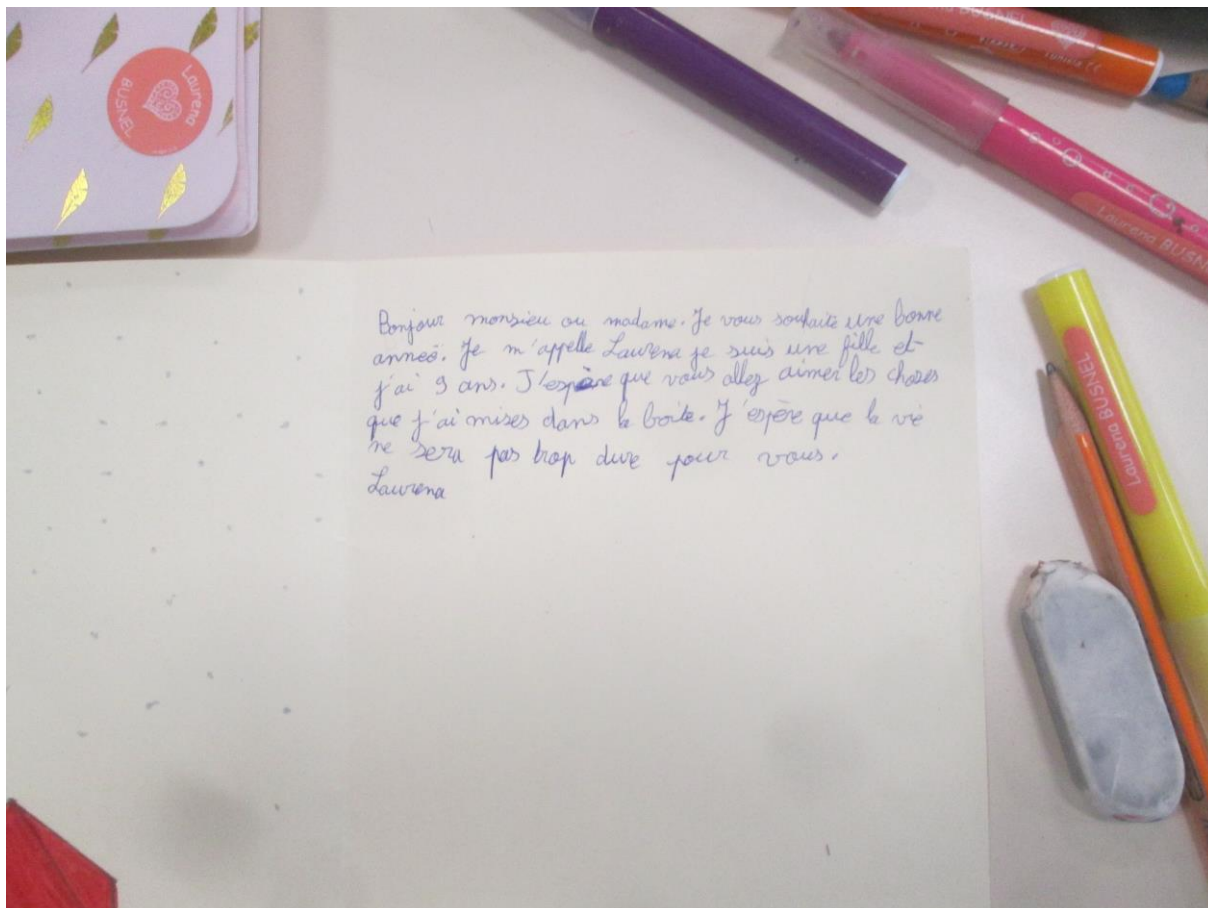 Laurena
BUSNEL
BUSNEL
Laurena BUSNEL
Laurena BUSNEL
Bonjour monsieu ou madame. Je vous souhaite une bonne
anneé. Je m'appelle Laurena je suis une fille et
j'ai 9 ans. J'espère que vous allez aimer les choses
que j'ai mises dans la boite. J'espère que la vie
ne sera pas trop dure pour vous.
Laurena